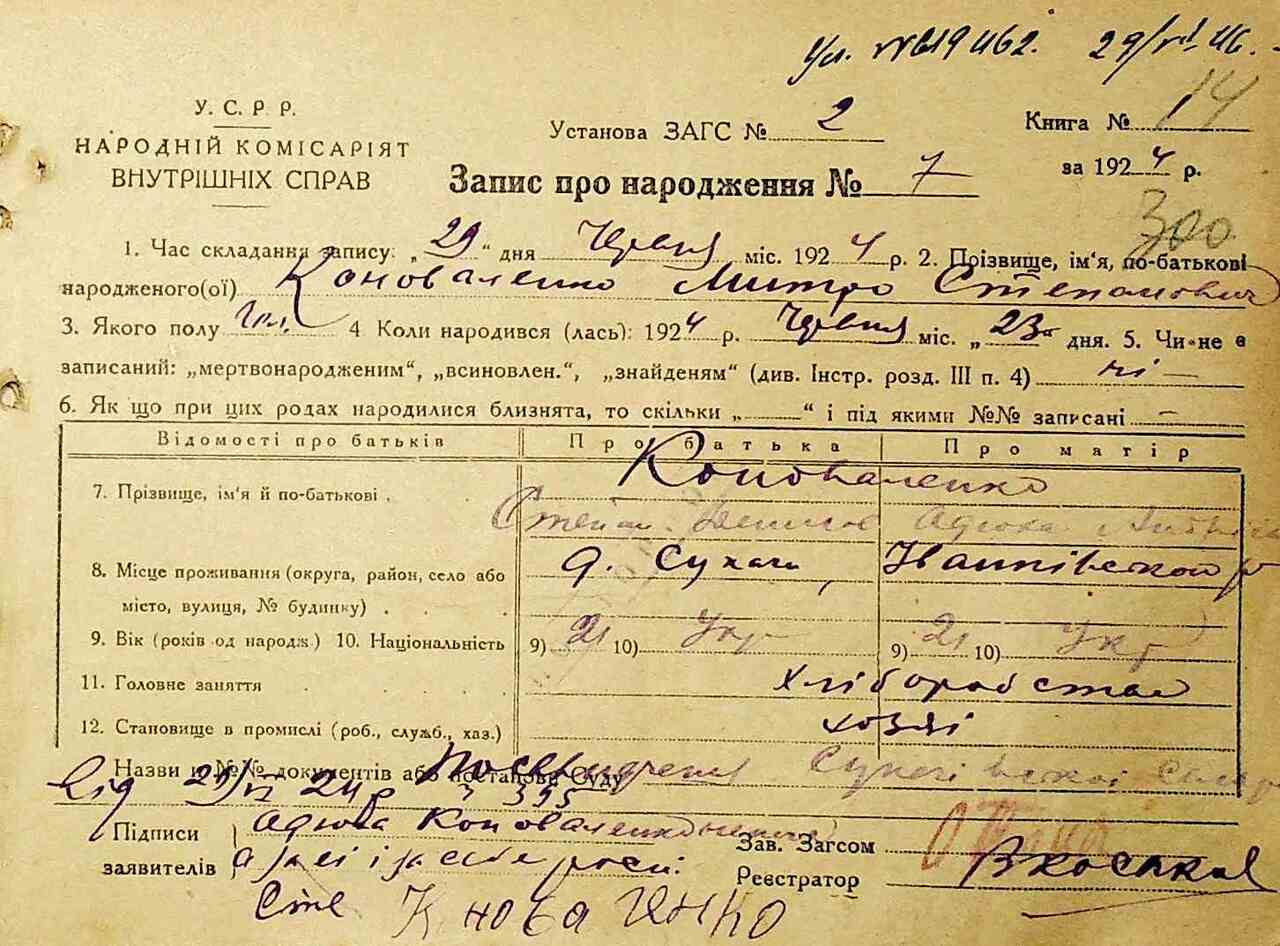 Ул. №619462. 29/VI 46.
У. С. Р. Р.
НАРОДНІЙ КОМІСАРІЯТ
ВНУТРІШНІХ СПРАВ
Установа ЗАГС № 2
Книга № 14
Запис про народження № 7
за 1924 р.
300
1. Час складання запису: „29“ дня Червня міс. 1924 р. 2. Прізвище, ім'я, по-батькові
народженого(ої) Коноваленко Митро Степанович
3. Якого полу чол. 4 Коли народився (лась): 1924 р. Червня міс. „23“ дня. 5. Чи не є
записаний: „мертвонародженим“, „всиновлен.“, „знайденям“ (див. Інстр. розд. III п. 4) ні —
6. Як що при цих родах народилися близнята, то скільки „ “ і під якими №№ записані —
Відомості про батьків Про батька Про матір
7. Прізвище, ім'я й по-батькові . Коноваленко
Степан Денисов
8. Місце проживання (округа, район, село або
місто, вулиця, № будинку) . . .
9. Вік (років од народж) 10. Національність 9) 21 10) Укр 9) 21 10) Укр
11. Головне заняття . . . . хліборобством
12. Становище в промислі (роб., служб., хаз.) хозяї
Назви и №№ документів або постанови Суду Посвідчення
Від 29/VI 24 р 395
Підписи
заявителів
Коноваленко
Зав. Загсом
Реєстратор